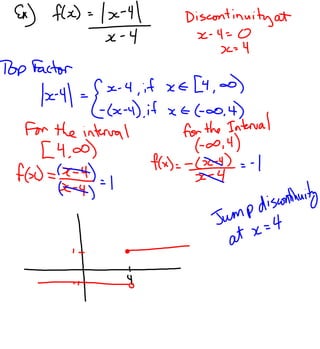 Ex) f(x) = |x-4| / x-4
Discontinuity at
x-4=0
x=4
Top Factor
|x-4| = { x-4, if x ∈ [4, ∞)
-(x-4), if x ∈ (-∞, 4)
For the interval
[4, ∞)
f(x) = (x-4) / (x-4) = 1
For the Interval
(-∞, 4)
f(x) = -(x-4) / x-4 = -1
Jump discontinuity
at x=4
1
4
-1